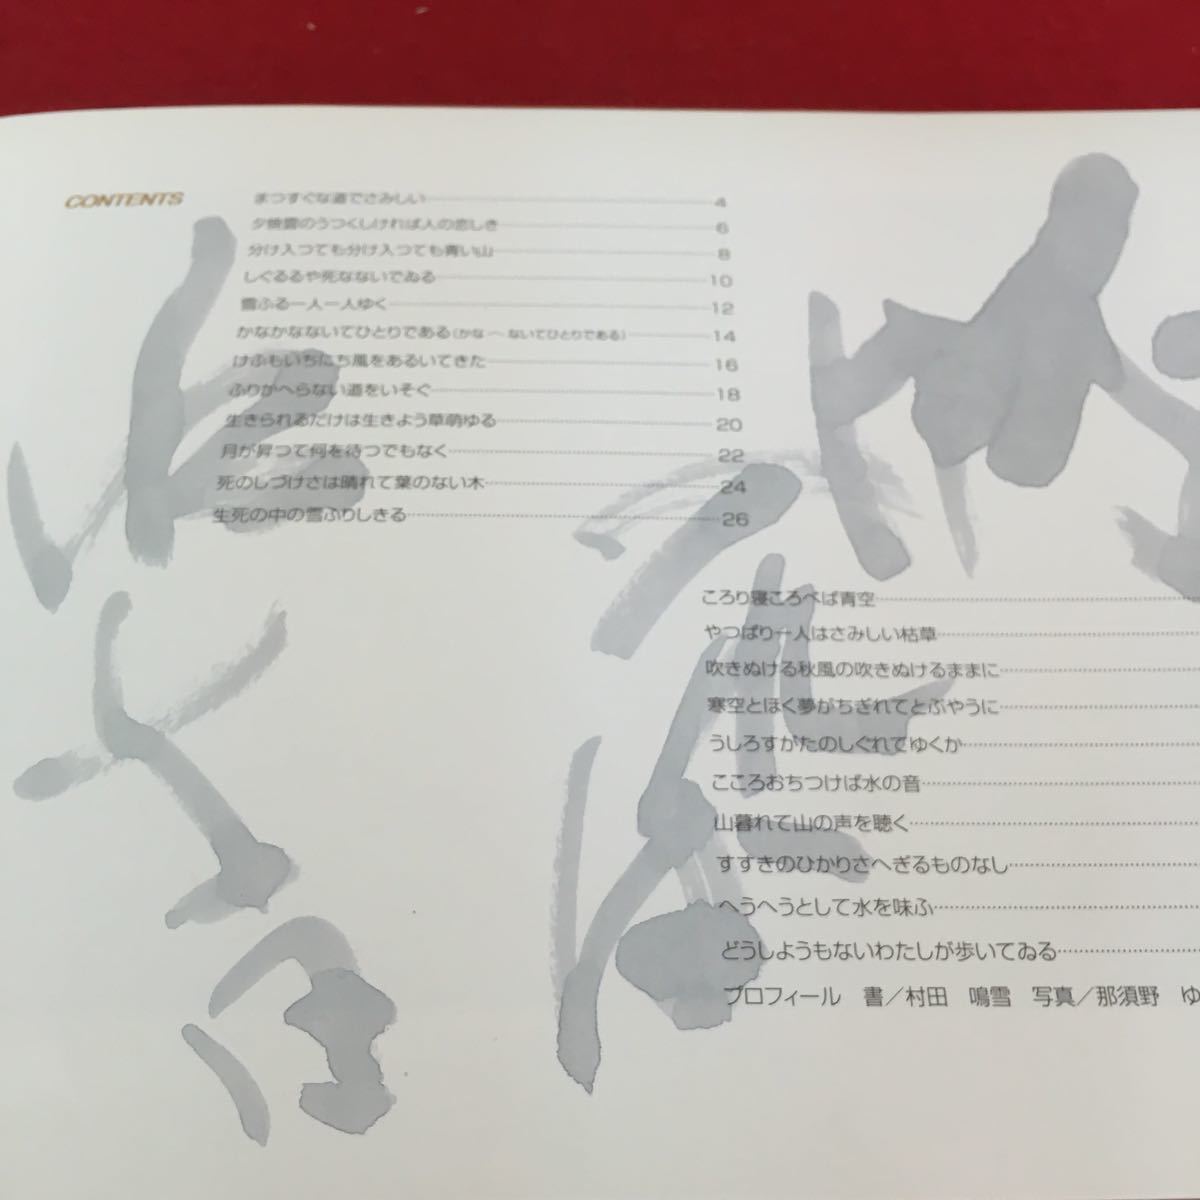 CONTENTS
まつすぐな道でさみしい 4
夕焼雲のうつくしければ人の恋しき 6
分け入つても分け入つても青い山 8
しぐるるや死なないでゐる 10
雪ふる一人一人ゆく 12
かなかなないてひとりである(かな〳〵ないてひとりである) 14
けふもいちにち風をあるいてきた 16
ふりかへらない道をいそぐ 18
生きられるだけは生きよう草萌ゆる 20
月が昇つて何を待つでもなく 22
死のしづけさは晴れて葉のない木 24
生死の中の雪ふりしきる 26
ころり寝ころべば青空
やつぱり一人はさみしい枯草
吹きぬける秋風の吹きぬけるままに
寒空とほく夢がちぎれてとぶやうに
うしろすがたのしぐれてゆくか
こころおちつけば水の音
山暮れて山の声を聴く
すすきのひかりさへぎるものなし
へうへうとして水を味ふ
どうしようもないわたしが歩いてゐる
プロフィール 書／村田 鳴雪 写真／那須野 ゆ